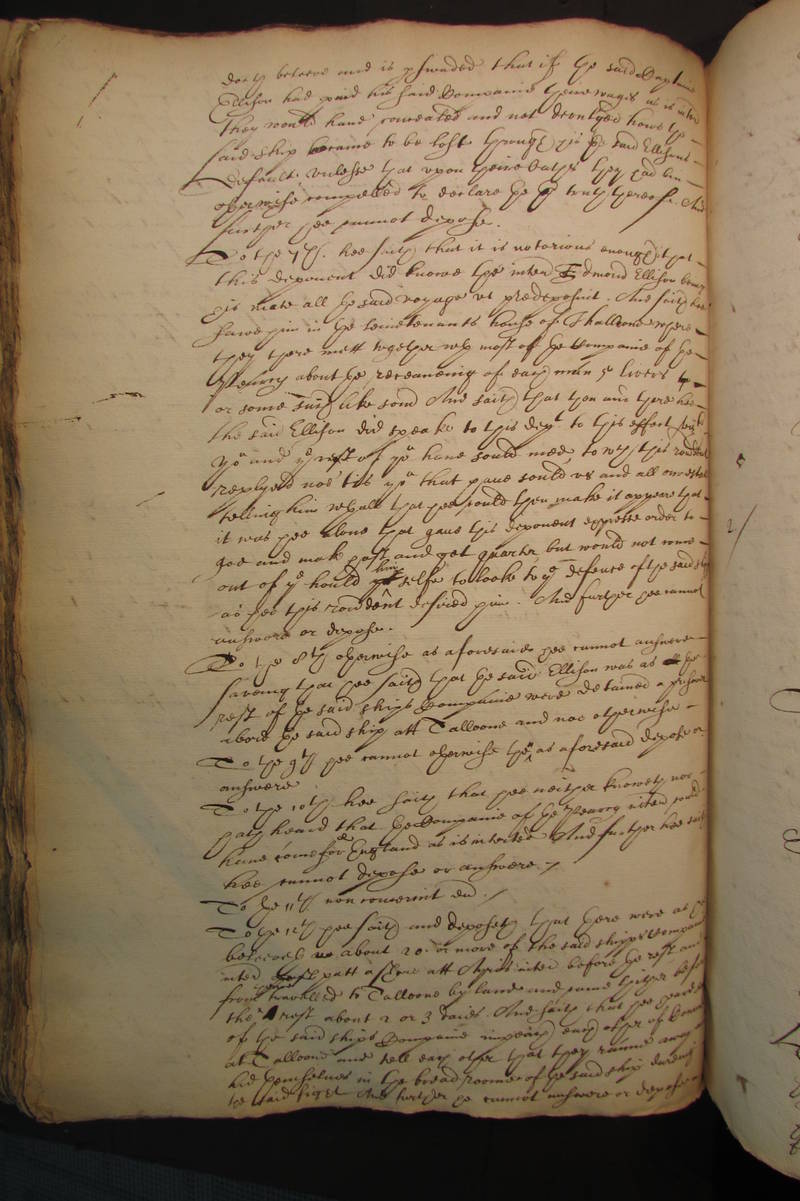 doth beleeve and is p'swaded that if the said Captaine
Ellison had paid his said Companie theire wages as is inter
they would have concealed and not devulged howe the
said ship became to be lost through his the said Ellisons
default unlesse that upon theire Oathes they had bin
otherwise compelled to declare the truth thereof. And
further hee cannot depose.
To the 7th. hee saith that it is notorious enough that
this deponent did knowe the inter Edmond Ellison being
his mate all the said voyage ut predeposuit. And saith hee
sawe him in the Leiuetenants house of Thalloone where
they there mett together with most of the Companie of the
Henry about the receaveing of each man 5 livers
or some such like som~ And saith that then and there hee
the said Ellison did speake to this dept to this effect
yo and ye rest of yo have sould mee, to wch this rondent
replyed noe tis yo that have sould us and all our estates
telling him withall that hee would then make it appeare that
it was hee alone that gave this deponent expresse order to
goe and mak hast and get quarter but would not come
out of ye hould himselfe to looke to ye defence of the said ship
as hee this rondent desired him. And further hee cannot
answere or depose.
To the 8th otherwise as aforesaid hee cannot answere
saveing that hee saith that the said Ellison was as the
rest of the said ships Companie were detained a prisoner
abord the said ship att Talloone and noe otherwise
To the 9th hee cannot otherwise then as aforesaid depose or
answere
To the 10th hee saith that hee neither knoweth nor
hath heard that the Companie of the Henry inter would
have come for England as is interred And further hee saith
hee cannot depose or answere.
To the 11th non concernit eu~.
To the 12th hee saith and deposeth that there were as he
beleeveth about 20 or more of the said ships Companie
inter putt a shore att inter before the rest and
from thence travelled to Talloone by land and came thither before
the rest about 2 or 3 daies. And saith that hee heard
of the said ships Companie impeach each other of
at Talloone and tell each other that they runne away and
hid themselves in the bread roome of the said ship dureing
the said fight And further he cannot answere or depose
2/